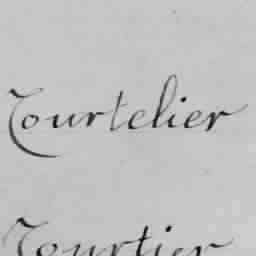 Tourtelier
Tourtier